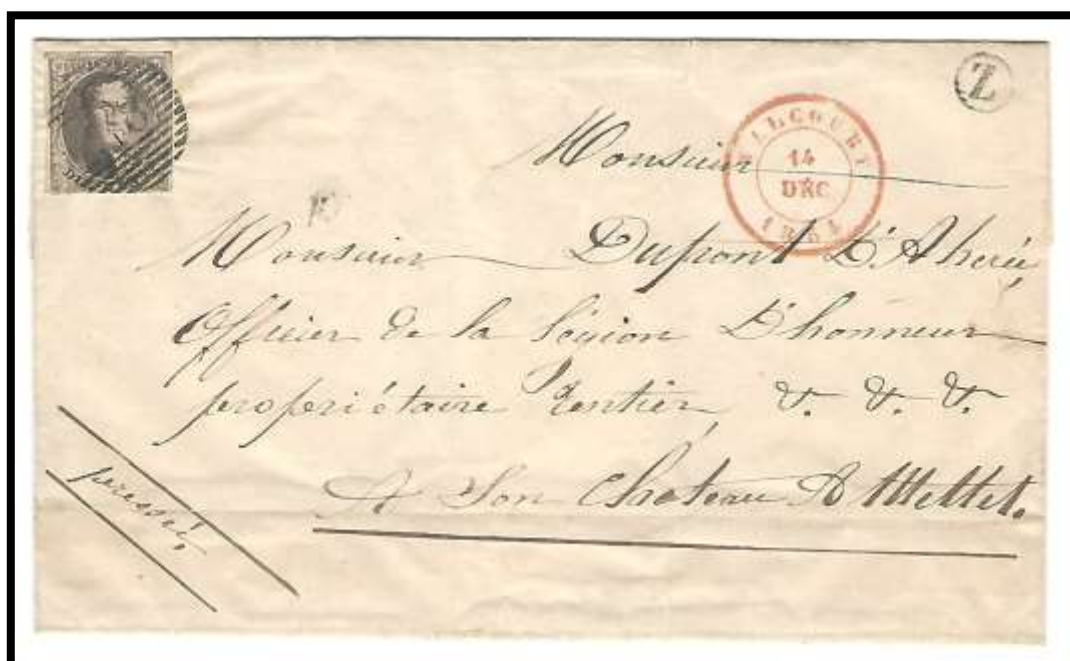 Z
14
DÉC
Monsieur
Monsieur Dupont D'Aherée,
Officier de la Légion D'honneur
propriétaire Rentier, &. &. &.
A Son Château A Mettet.
pressée,